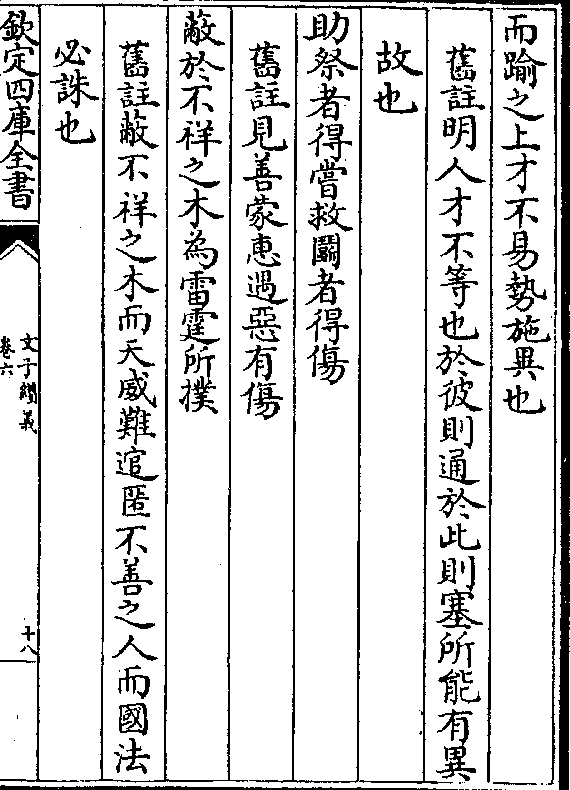 而踰之上才不易勢施異也
舊註明人才不等也於彼則通於此則塞所能有異
故也
助祭者得嘗救鬬者得傷
舊註見善蒙恵遇惡有傷
蔽於不祥之木為雷霆所撲
舊註蔽不祥之木而天威難逭匿不善之人而國法
必誅也
欽定四庫全書
文子纉義
卷六
十八